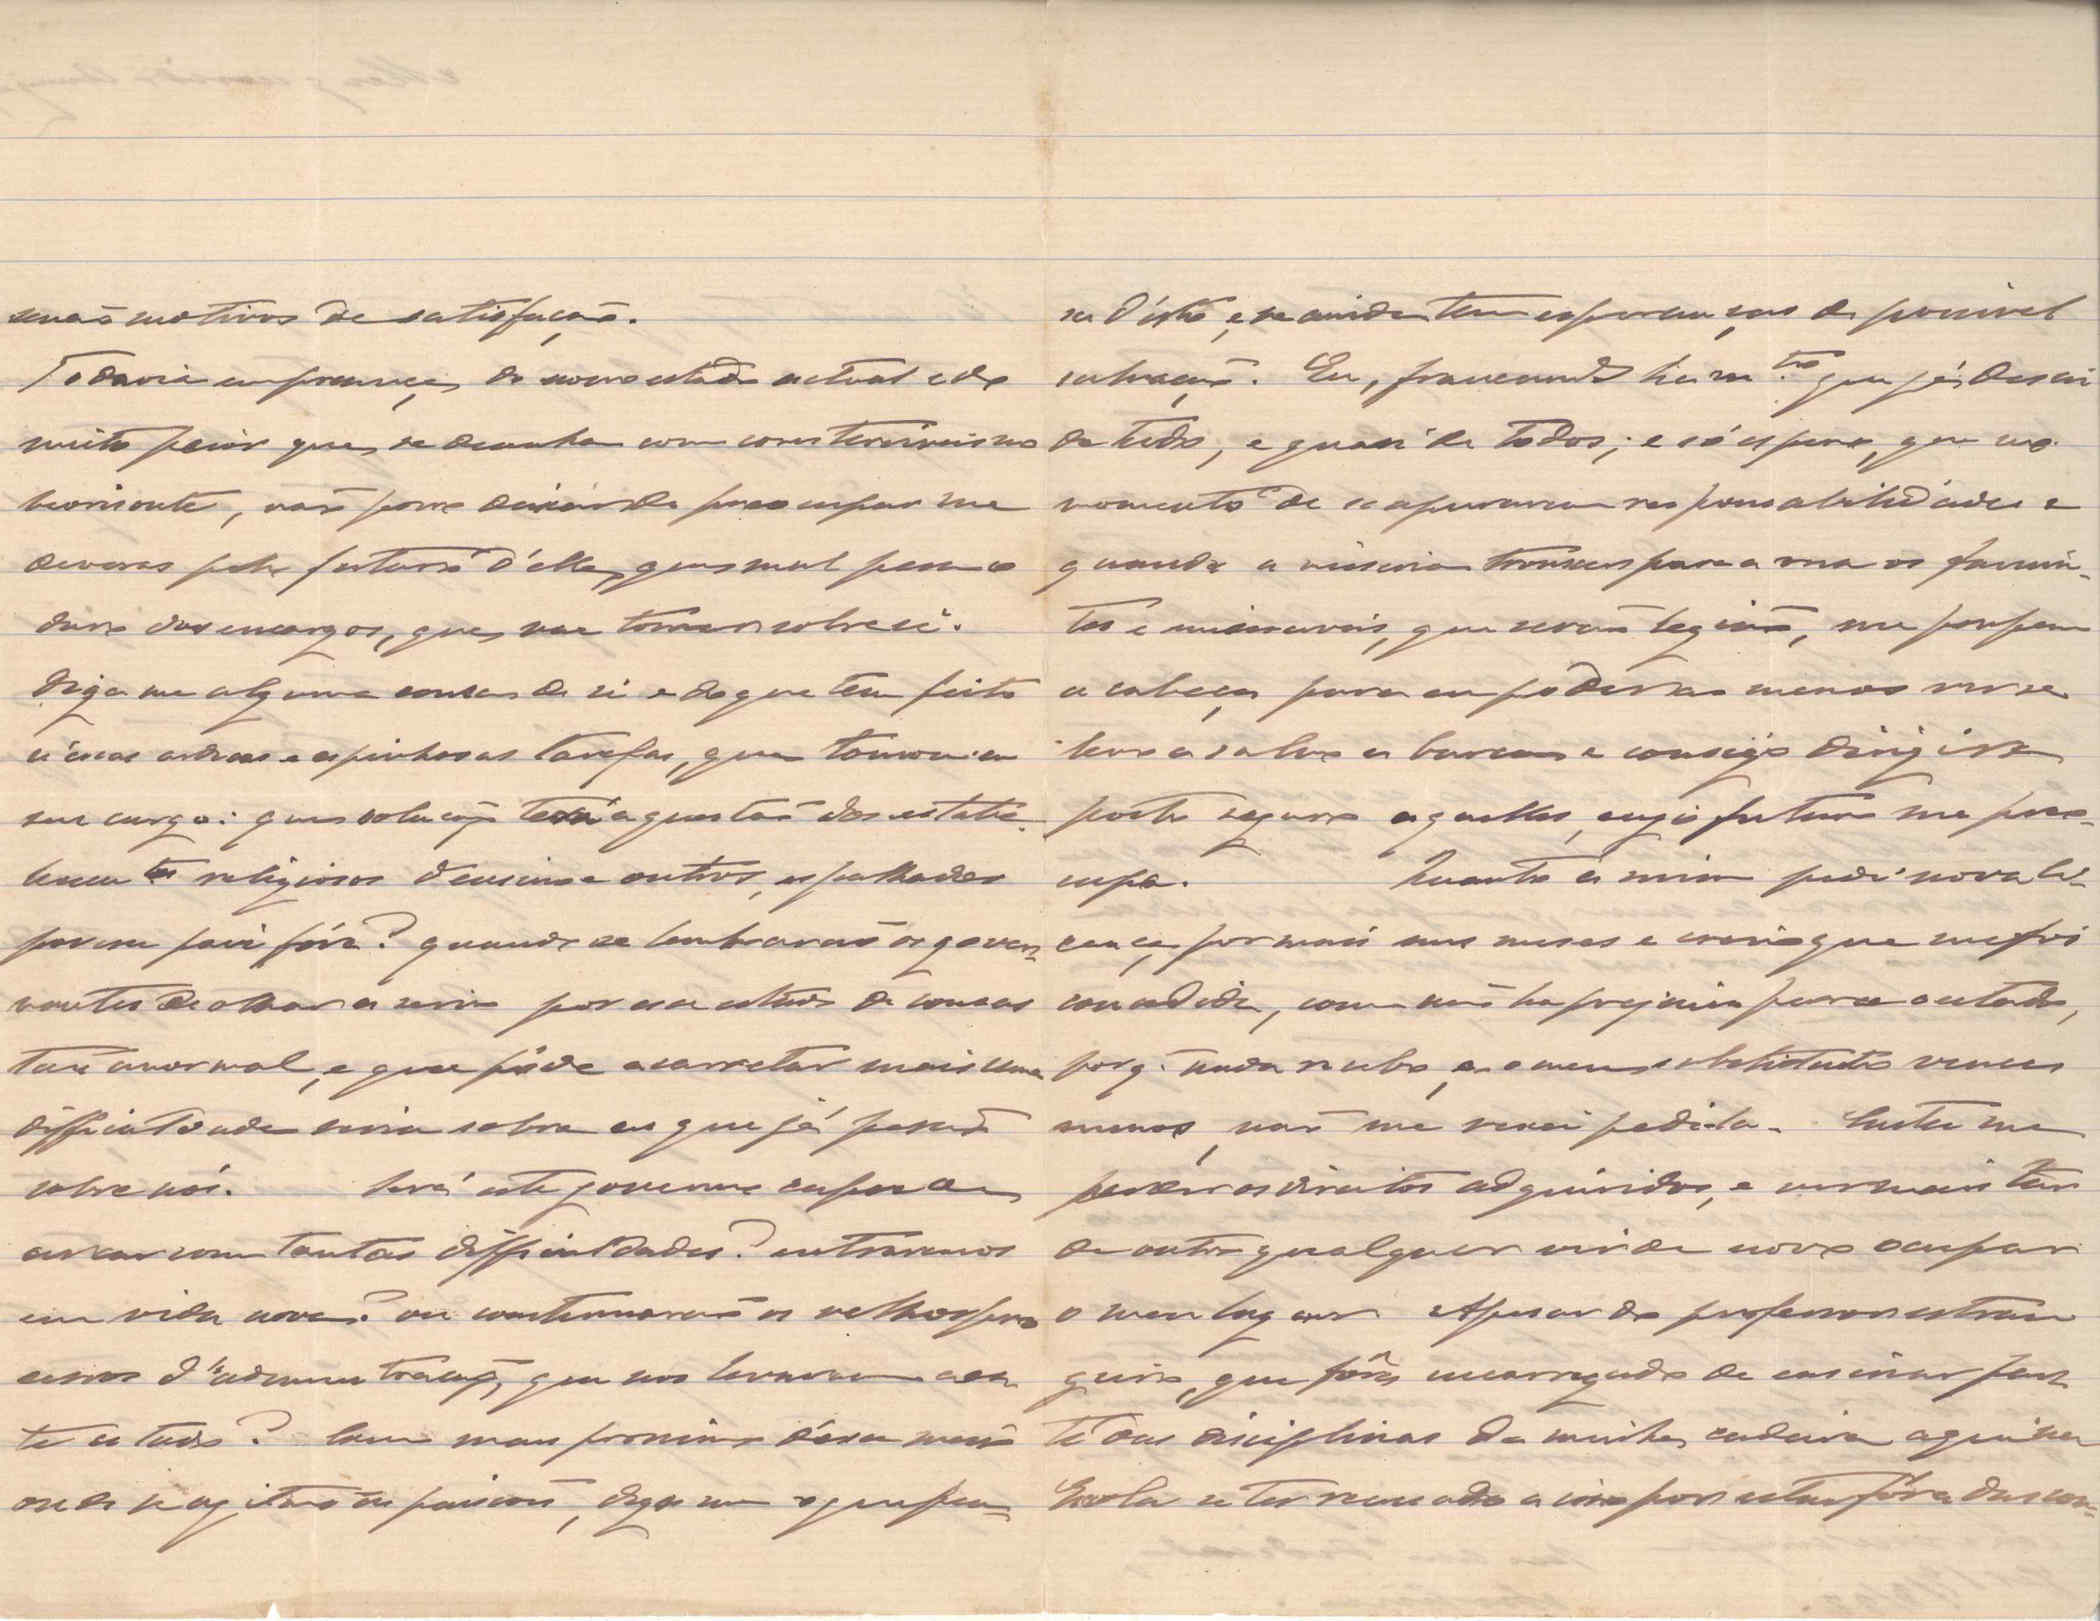 senão motivos de satisfação.
Todavia em presença do nosso estado actual e do
muito peior que se desenha com cores terriveis no
horisonte, não posso deixar de preoccupar me
deveras pelo futuro d'elles, que mal pensa
dura dos encargos, que vae tomar sobre si.
Diga me alguma cousa de si e do que tem feito
n'essas arduas e espinhosas tarefas, que tomou a
seu cargo: que solução terá a questão dos estabe-
lecimentos religiosos d'ensino e outros, espalhados
por esse paiz fóra? quando se lembrarão os gover-
nantes de olhar a serio por esse estado de cousas
tão anormal, e que póde acarretar mais uma
difficuldade seria sobre as que já pesam
sobre nós. Será este governo capaz de
arcar com tantas difficuldades? entraremos
em vida nova? ou continuarão os velhos pro
cessos d'administração, que nos levaram a es
te estado? Como mais proximo d'esse meio
onde se agitam as paixões, diga me o que pen-
sa d'isto, e se ainda tem esperanças de possivel
salvação. Eu, francamente que já descri
de tudo, e quasi de todos; e só espero, que no
momento de se apurarem responsabilidades e
quando a miseria trouxer para a rua os famin-
tos e miseraveis, que serão legião, me poupem
a cabeça para eu poder ao menos ver se
levo a salvo a barca e consigo dirigir a
porto seguro aquelles, cujo futuro me preoc-
cupa. Quanto a mim pedi nova li-
cença por mais uns meses e creio que me foi
concedida, como não ha prejuizo para o estado,
porq. nada recebo, e o meu substituto vence
menos, não me será pedida. Custa me
perder os direitos adquiridos, e ver mais tar
de outro qualquer vir de novo occupar
o meu lugar. Apesar do professor estran
geiro, que fôra encarregado de ensinar par
te das disciplinas da minha cadeira aqui na
Escola se ter recusado a isso por estar fóra das con-